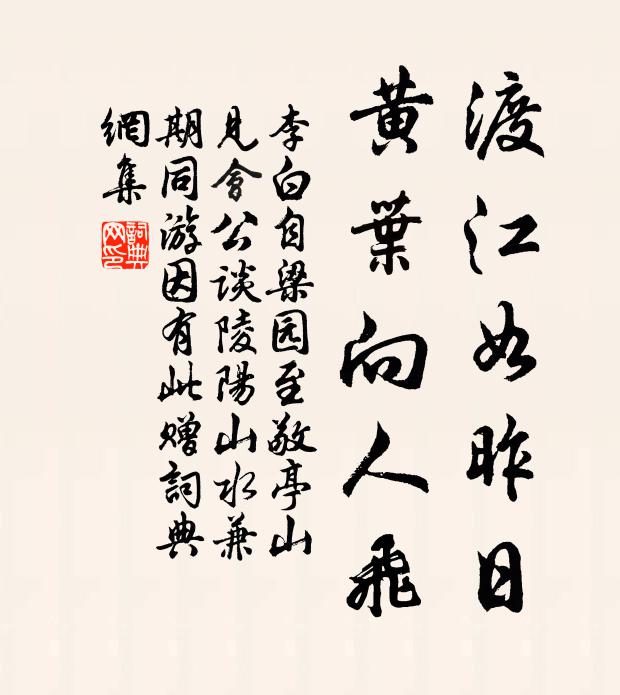 渡江如昨日
黄葉向人飛
李白自梁园至敬亭山
見會公谈陵陽山水兼
期同游因有此赠詞典
網集
詞典
网印